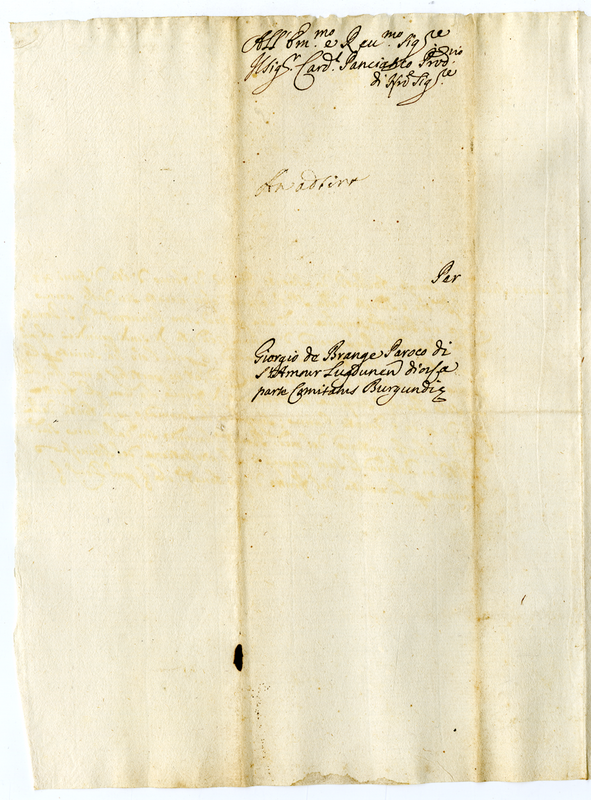 All' Em.mo e Reu.mo Sig.re
Il Sig.r Card.l Panciatico Prod.rio
di N'ro Sig.re
Per
Giorgio de Brange Paroco di
S.t Amour Lugdunen dioisa
parte Comitatus Burgundiæ